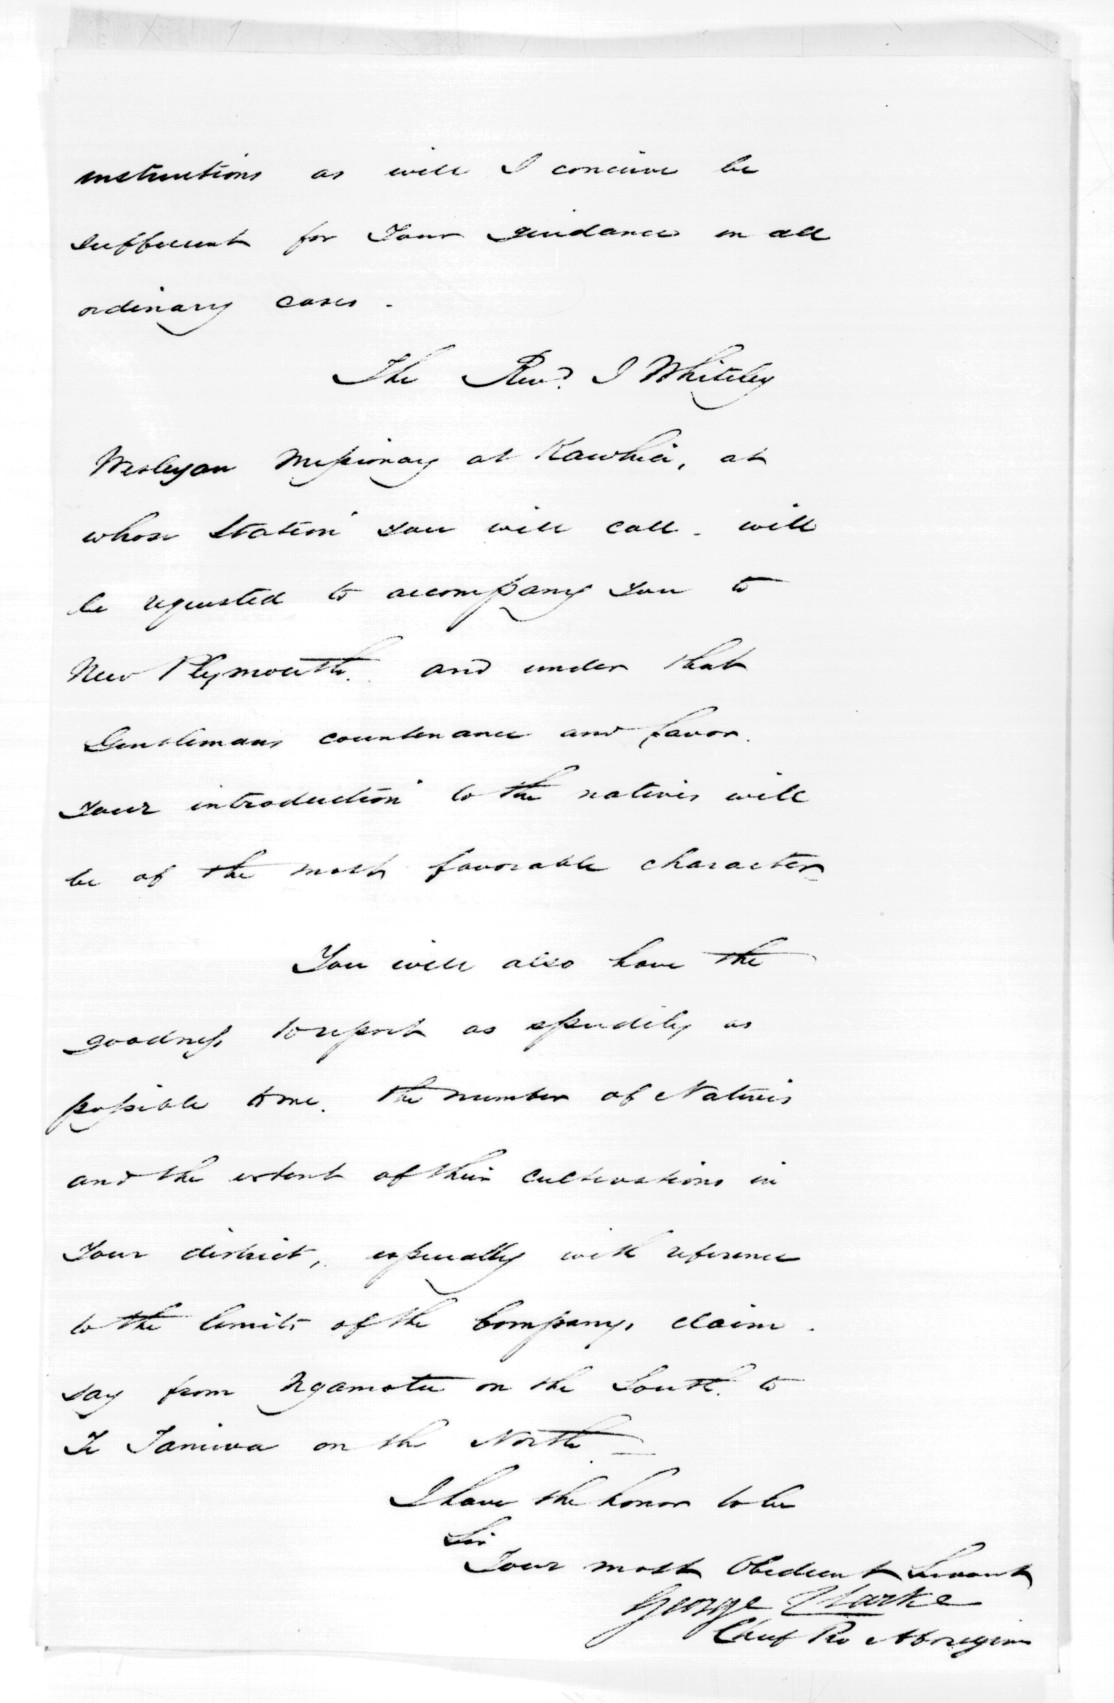 instructions as will I conceive be
sufficient for Your guidance in all
ordinary cases.
The Revd. J Whiteley
Wesleyan Missionary at Kawhia, at
whose Station you will call. will
be requested to accompany you to
New Plymouth. and under that
Gentlemans countenance and favor.
Your introduction to the natives will
be of the most favorable character
You will also have the
goodness to report as speedily as
possible to me. the number of Natives
and the extent of their cultivations in
Your district, especially with reference
to the limits of the Companys claim.
say from Ngamotu on the South. to
Te Taniwa on the North.
I have the honor to be
Sir
Your most Obedient Servant
George Clarke
Chief Pro Aborigines